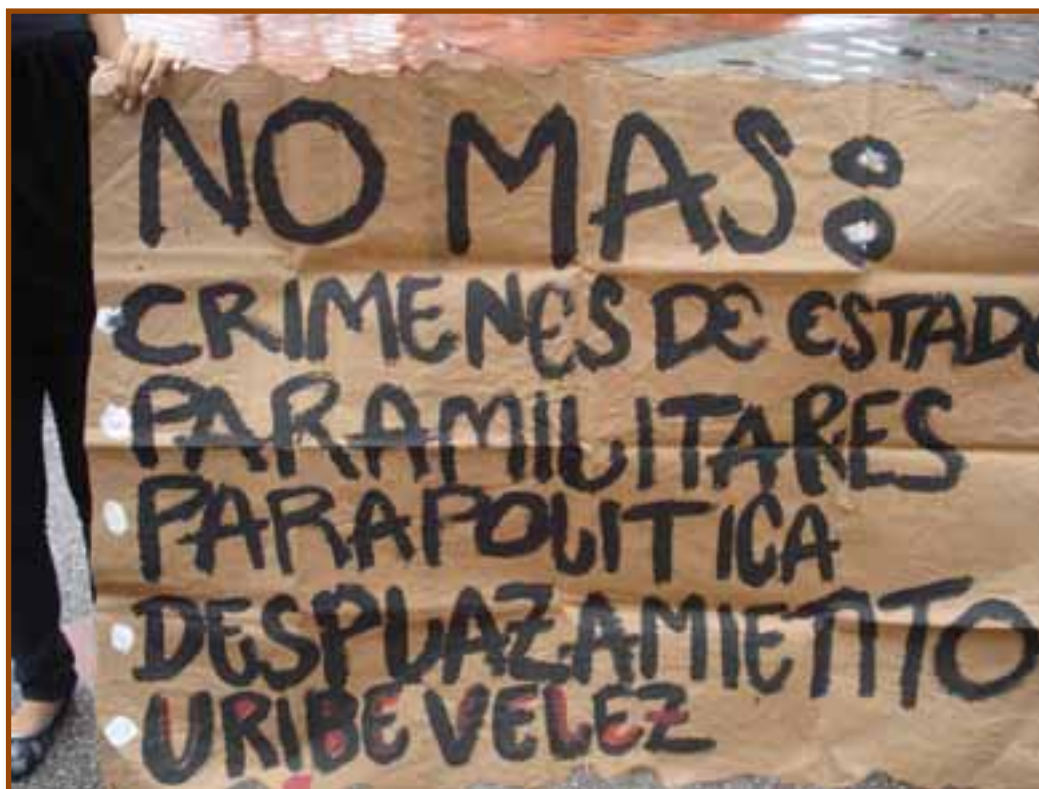 NO MAS:
CRIMENES DE ESTADO
PARAMILITARES
PARAPOLITICA
DESPLAZAMIENTO
URIBE VELEZ